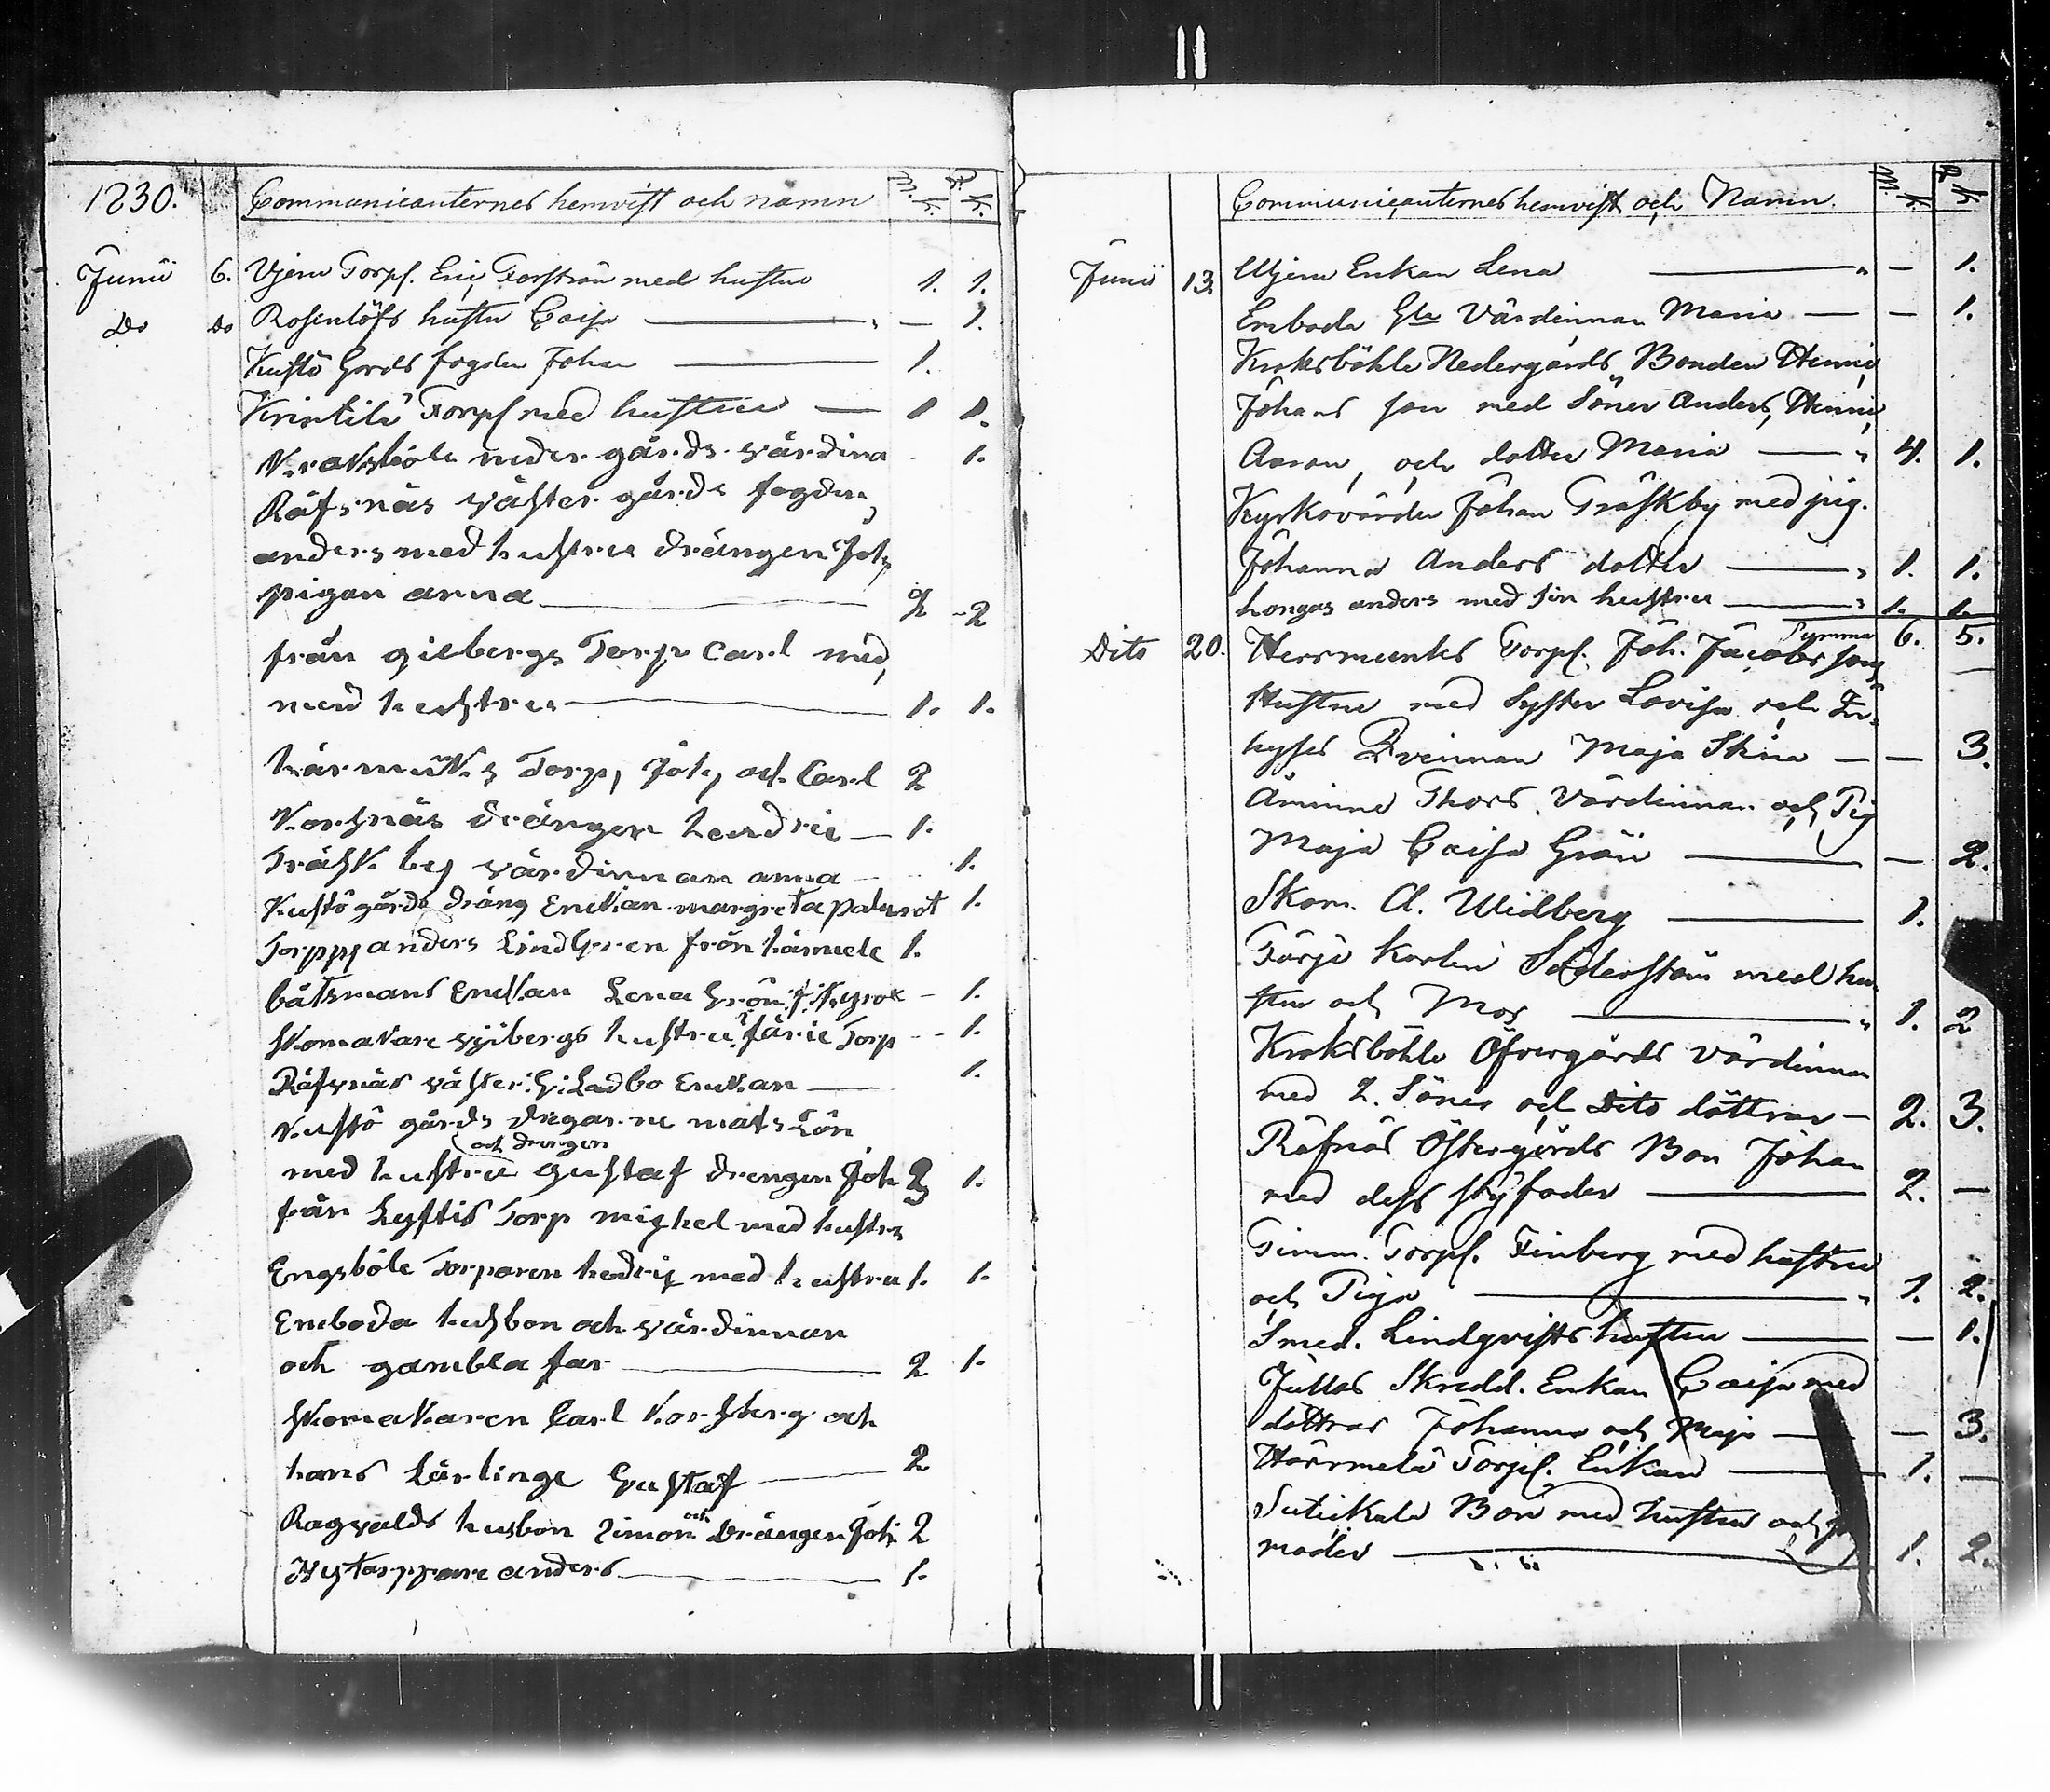 1830. Communicanternes hemvist och namn M. K. Q. K.
Junii 6. Ujenu Torpf. Eric Forsström med hustru 1. 1.
Do Do Rosenlöfs hustru Caisa — 1.
Kustö Gårds fogden Johan 1.
Krintilä Torpf med hustru 1 1.
Kroksböle neder gårds värdina 1.
Räfsnäs väster gårds fogden
anders med hustru drängen Joh
pigan anna 2 2
från gilbergs Torp Carl med
med hustru 1. 1.
härmunks Torp, Joh, och Carl 2
Korsnäs drängen hendric 1.
Träsk by värdinnan anna 1.
Kustö gårds dräng Enkan margreta palmrot 1.
Torppf anders Lindgren från härmele 1.
båtsmans Enkan Lena Grön 1.
skomakare vjibergs hustru färie Torp 1.
Räfsnäs väster: G: Ladbo Enkan 1.
Kustö gårds dregarne mats Lön
och drengen
med hustru Gustaf drengen Joh 3 1.
från Lyftis Torp mighel med hustru
Engsböle Torparen hedrig med hustru 1. 1.
Emboda husbon och värdinnan
och gambla far 2 1.
skomakaren Carl Korsberg och
hans Lärlinge Gustaf 2
Ragvalds husbon Simon och Drängen Joh 2
Nytorppare anders 1.
Communicanternes hemvist och Namn. M. K. Q. K.
Junii 13. Ujenu Enkan Lena — 1.
Emboda Gla Värdinnan Maria — 1.
Kroksböhle Nedergårds Bonden Henric
Johans son med Söner Anders, Henric,
Aaron, och dotter Maria 4. 1.
Kyrkovärden Johan Träskby med pig.
Johanna Anders dotter 1. 1.
hongas anders med sin hustru 1. 1.
Summa 6. 5.
Dito 20. Herrmunks Torpf. Joh. Jacobs sons
Hustru med Syster Lovisa och In-
hyses Qvinnan Maja Stina — 3.
Åminne Thors. Värdinnan och Pig
Maja Caisa Grön — 2.
Skom. A. Widberg 1.
Färje Karlen Söderström med hu-
stru och Mor 1. 2
Kroksböhle Öfvergårds värdinnan
med 2. Söner och Dito döttrar 2. 3.
Räfnäs Östergårds Bon Johan
med dess styfader 2. —
Timm. Torpf. Finberg med hustru
och Piga 1. 2.
Smed. Lindqvists hustru — 1.
Jullas Skredd. Enkan Caisa med
döttrar Johanna och Maja — 3.
Härrmelä Torpf. Enkan 1. —
Bon med hustru och
moder 1. 2.